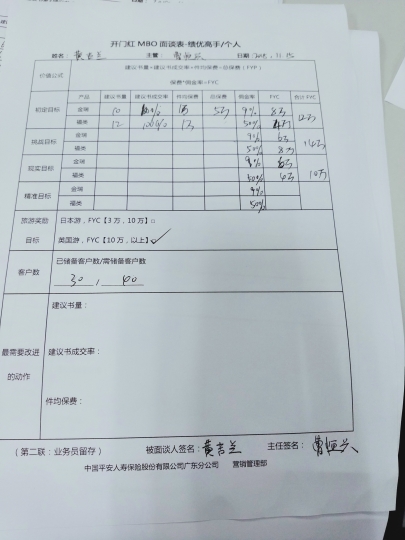 开门红 MBO 面谈表-绩优高手/个人
姓名：黄吉兰 主管： 日期：
价值公式 建议书量×建议书成交率×件均保费=总保费（FYP）
保费*佣金率=FYC
产品 建议书量 建议书成交率 件均保费 总保费 佣金率 FYC 合计 FYC
初定目标 金瑞 10 9% 8万
福类 12 100% 1万 50% 4万 12万
挑战目标 金瑞 9% 6万
福类 50% 8万 14万
现实目标 金瑞 9% 6万
福类 50% 4万 10万
精准目标 金瑞 9%
福类 50%
旅游奖励 日本游，FYC【3 万，10 万】□
目标 英国游，FYC【10 万，以上】✓
客户数 已储备客户数/需储备客户数
30 , 60
建议书量：
最需要改进 建议书成交率：
的动作
件均保费：
（第二联：业务员留存） 被面谈人签名：黄吉兰 主任签名：曾恒兴
中国平安人寿保险股份有限公司广东分公司 营销管理部